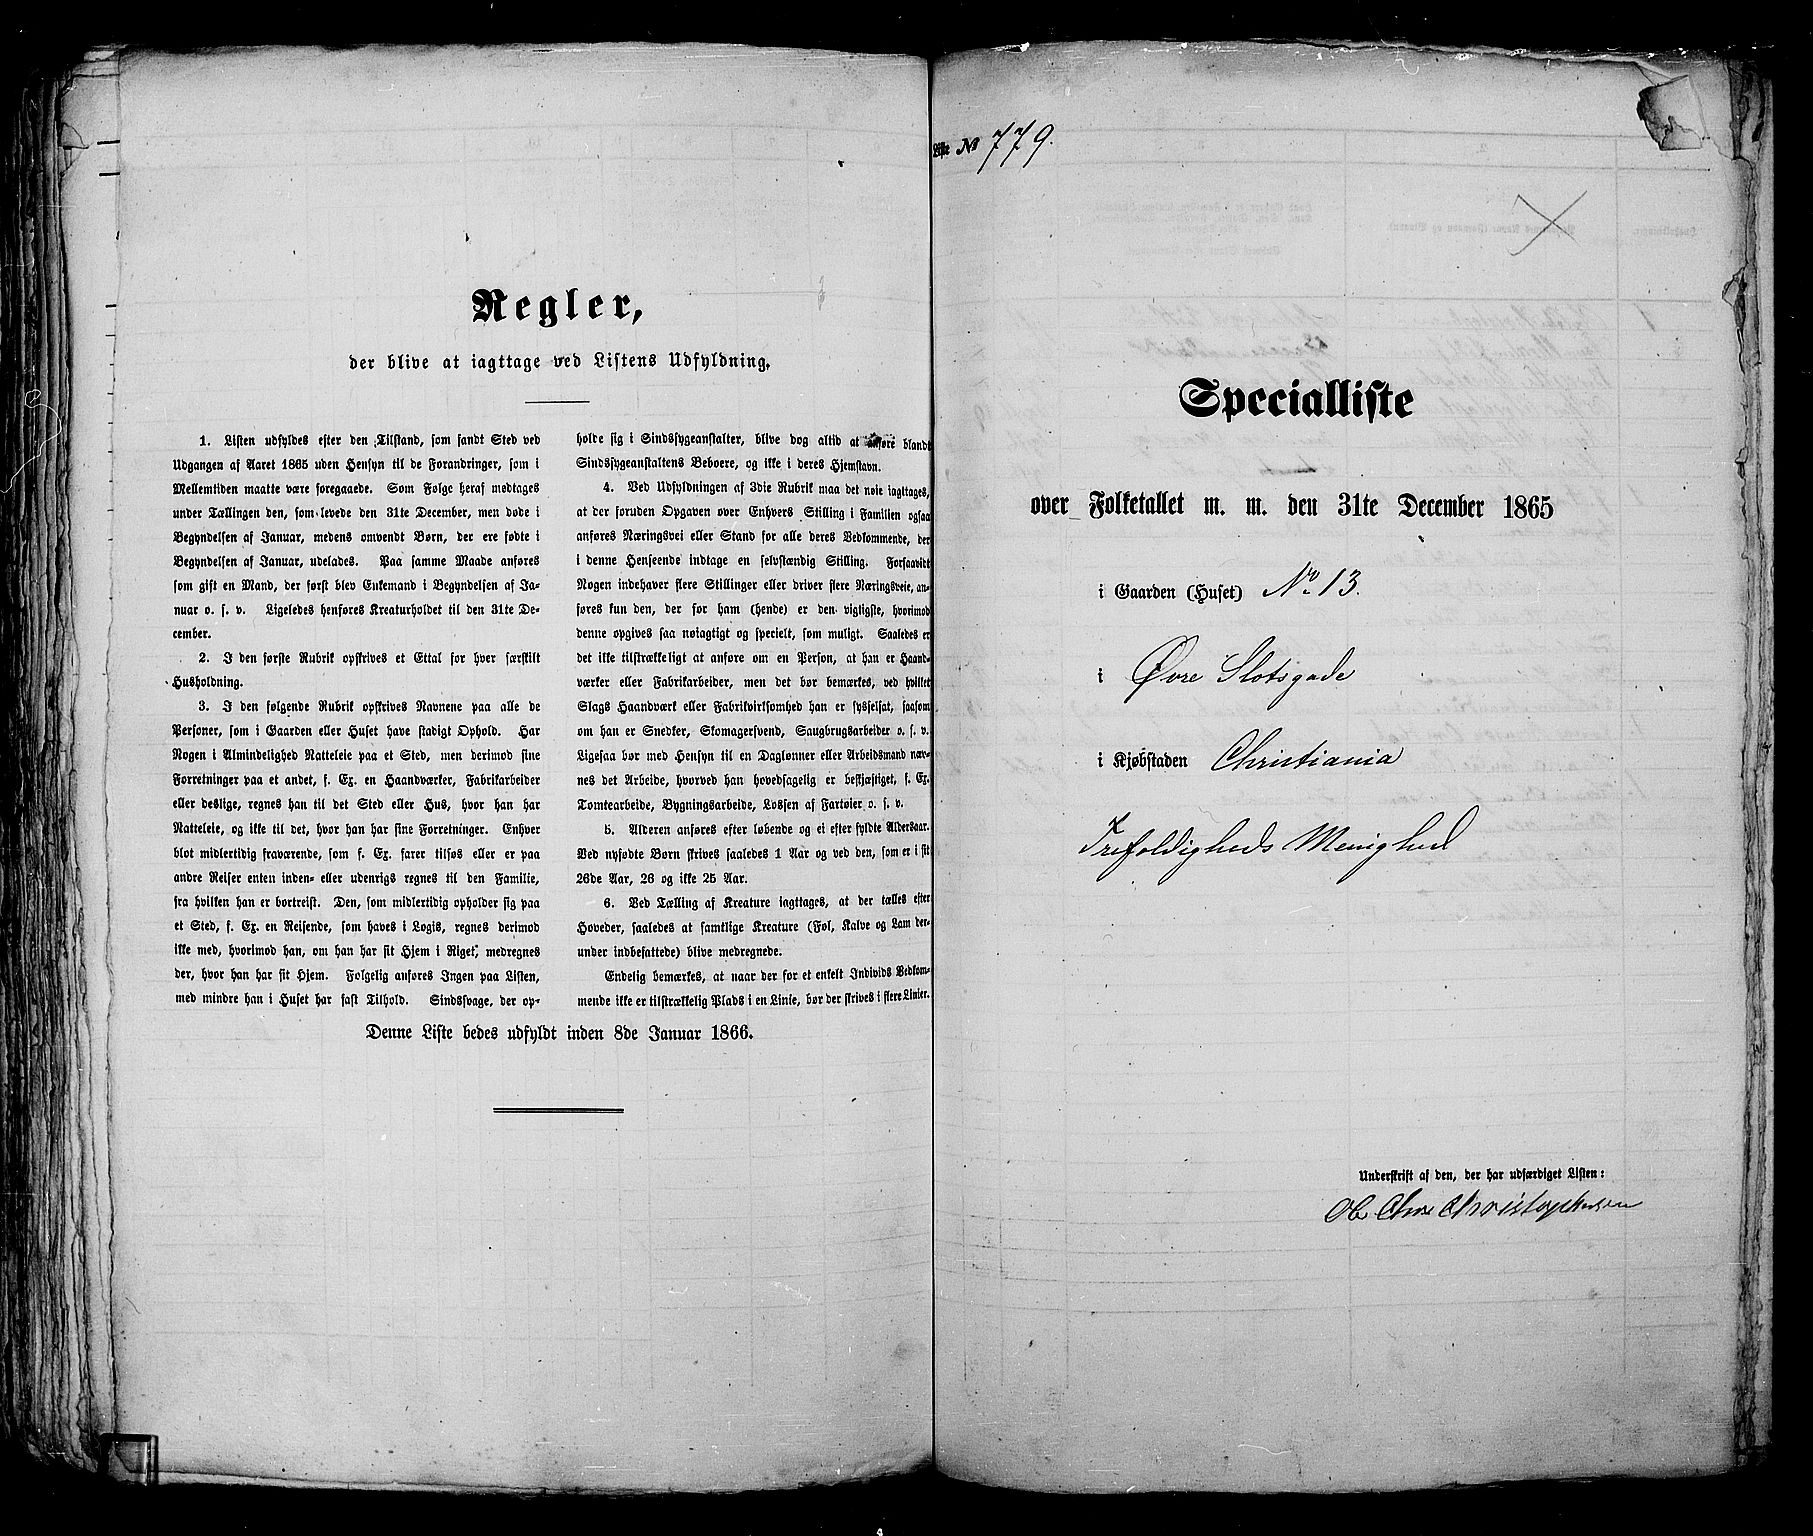 Regler,
der blive at iagttage ved Listens Udfyldning.
1. Listen udfyldes efter den Tilstand, som fandt Sted ved
Udgangen af Aaret 1865 uden Hensyn til de Forandringer, som i
Mellemtiden maatte være foregaaede. Som Følge heraf medtages
under Tællingen den, som levede den 31te December, men døde i
Begyndelsen af Januar, medens omvendt Børn, der ere fødte i
Begyndelsen af Januar, udelades. Paa samme Maade anføres
som gift en Mand, der først blev Enkemand i Begyndelsen af Ja-
nuar o. s. v. Ligeledes henføres Kreaturholdet til den 31te De-
cember.
2. I den første Rubrik opskrives et Ettal for hver særskilt
Husholdning.
3. I den følgende Rubrik opskrives Navnene paa alle de
Personer, som i Gaarden eller Huset have stadigt Ophold. Har
Nogen i Almindelighed Natteleie paa et Sted, men derimod sine
Forretninger paa et andet, f. Ex. en Haandværker, Fabrikarbeider
eller deslige, regnes han til det Sted eller Hus, hvor han har
Natteleie, og ikke til det, hvor han har sine Forretninger. Enhver
blot midlertidig fraværende, som f. Ex. farer tilsøs eller er paa
andre Reiser enten inden- eller udenrigs regnes til den Familie,
fra hvilken han er bortreist. Den, som midlertidig opholder sig paa
et Sted, f. Ex. en Reisende, som haves i Logis, regnes derimod
ikke med, hvorimod han, om han har sit Hjem i Riget, medregnes
der, hvor han har sit Hjem. Følgelig anføres Ingen paa Listen,
med mindre han i Huset har fast Tilhold. Sindssvage, der op-
holde sig i Sindssygeanstalter, blive dog altid at anføre blandt
Sindssygeanstaltens Beboere, og ikke i deres Hjemstavn.
4. Ved Udfyldningen af 3die Rubrik maa det nøie iagttages,
at der foruden Opgaven over Enhvers Stilling i Familien ogsaa
anføres Næringsvei eller Stand for alle deres Vedkommende, der
i denne Henseende indtage en selvstændig Stilling. Forsaavidt
Nogen indehaver flere Stillinger eller driver flere Næringsveie, an-
føres kun den, der for ham (hende) er den vigtigste, hvorimod
denne opgives saa nøiagtigt og specielt, som muligt. Saaledes er
det ikke tilstrækkeligt at anføre om en Person, at han er Haand-
værker eller Fabrikarbeider, men det bør bemærkes, ved hvilket
Slags Haandværk eller Fabrikvirksomhed han er sysselsat, saasom
om han er Snedker, Skomagersvend, Saugbrugsarbeider o. s. v.
Ligesaa bør med Hensyn til en Daglønner eller Arbeidsmand næv-
nes det Arbeide, hvorved han hovedsagelig er beskjæftiget, f. Ex.
Tomtearbeide, Bygningsarbeide, Lossen af Fartøier o. s. v.
5. Alderen anføres efter løbende og ei efter fyldte Aldersaar.
Ved nyfødte Børn skrives saaledes 1 Aar og ved den, som er i sit
26de Aar, 26 og ikke 25 Aar.
6. Ved Tælling af Kreature iagttages, at der tælles efter
Hoveder, saaledes at samtlige Kreature (Føl, Kalve og Lam der-
under indbefattede) blive medregnede.
Endelig bemærkes, at naar der for et enkelt Individs Vedkom-
mende ikke er tilstrækkelig Plads i en Linie, bør der skrives i flere Linier.
Denne Liste bedes udfyldt inden 8de Januar 1866.
Liste № 779.
Specialliste
over Folketallet m. m. den 31te December 1865
i Gaarden (Huset) No 13.
i Øvre Slotsgade
i Kjøbstaden Christiania
Trefoldigheds Menighed
Underskrift af den, der har udfærdiget Listen:
Christophersen